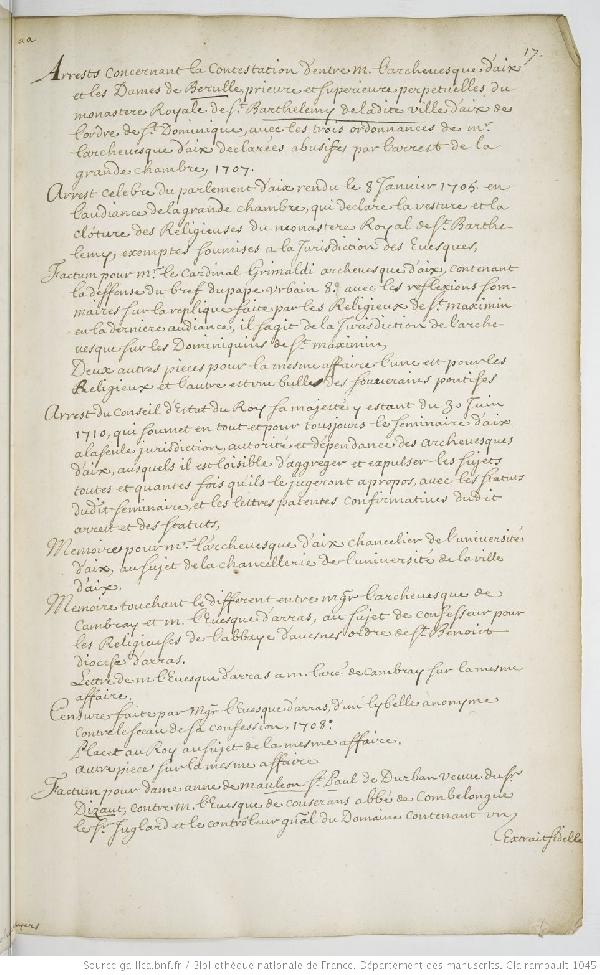 17.
Arrests concernant la Contestation d'entre M. l'archevesque d'aix
et les Dames de Berulle, prieure et superieure perpetuelles, du
monastere Royale de St. Barthelemy de ladite ville d'aix de
l'ordre de St. Dominique, avec les trois ordonnances de Mr.
l'archevesque d'aix declarées abusifes par l'arrest de la
grande chambre, 1707.
Arrest celebre du parlement d'aix rendu le 8 Janvier 1705 en
l'audiance de la grande chambre, qui declare la vesture et la
clôture des Religieuses du monastere Royal de St. Barthe-
lemy, exemptes soumises a la Jurisdiction des Evesques,
Factum pour Mr. le Cardinal Grimaldi archevesque d'aix, contenant
la deffense du bref du pape Urbain 8e. avec les reflexions som-
maires sur la replique faite par les Religieux de St. maximin
en la derniere audiance, il s'agit de la Jurisdiction de l'arche-
vesque sur les Dominiquins de St. maximin,
Deux autres pieces pour la mesme affaire l'une est pour les
Religieux et l'autre est une bulle des souverains pontifes
Arrest du Conseil d'Estat du Roy sa majesté y estant du 30 Juin
1710, qui soumet en tout et pour tousjours le seminaire d'aix
a la seule jurisdiction, autorité et dependance des archevesques
d'aix, ausquels il est loisible d'aggreger et expulser les sujets
toutes et quantes fois qu'ils le jugeront a propos, avec les statuts
dudit seminaire, et les lettres patentes confirmatives dudit
arrest et des statuts,
Memoires pour Mr. l'archevesque d'aix chancelier de l'université
d'aix, au sujet de la chancellerie de l'université de la ville
d'aix.
Memoire touchant le different entre Mgr l'archevesque de
Cambray et M. l'Evesque d'arras, au sujet de confesseur pour
les Religieuses de l'abbaye d'avesnes ordre de St. Benoist
diocese d'arras.
Lettre de M. l'Evesque d'arras a M. l'arc. de Cambray sur la mesme
affaire.
Censure faite par Mgr l'Evesque d'arras, d'un lybelle anonyme
contre le sceau de la confession, 1708.
Placet au Roy au sujet de la mesme affaire.
autre piece sur la mesme affaire
Factum pour dame anne de mauleon St. Paul de Durban veuve du Sr.
Dizaut, contre M. l'Evesque de couserans abbé de Combelongue
le Sr. Juglard et le contrôleur gnãl du Domaine contenant un
Extrait fidelle
Source gallica.bnf.fr / Bibliothèque nationale de France. Département des manuscrits. Clairambault 1045